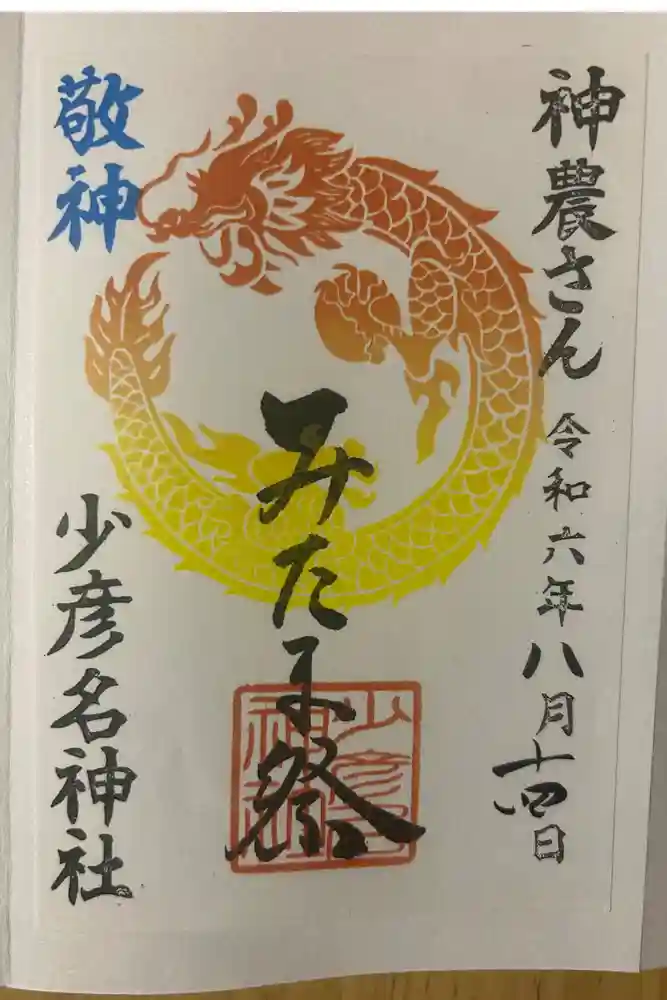 神農さん 令和六年八月十四日
みたま祭
敬神
少彦名神社
少彦名
神社